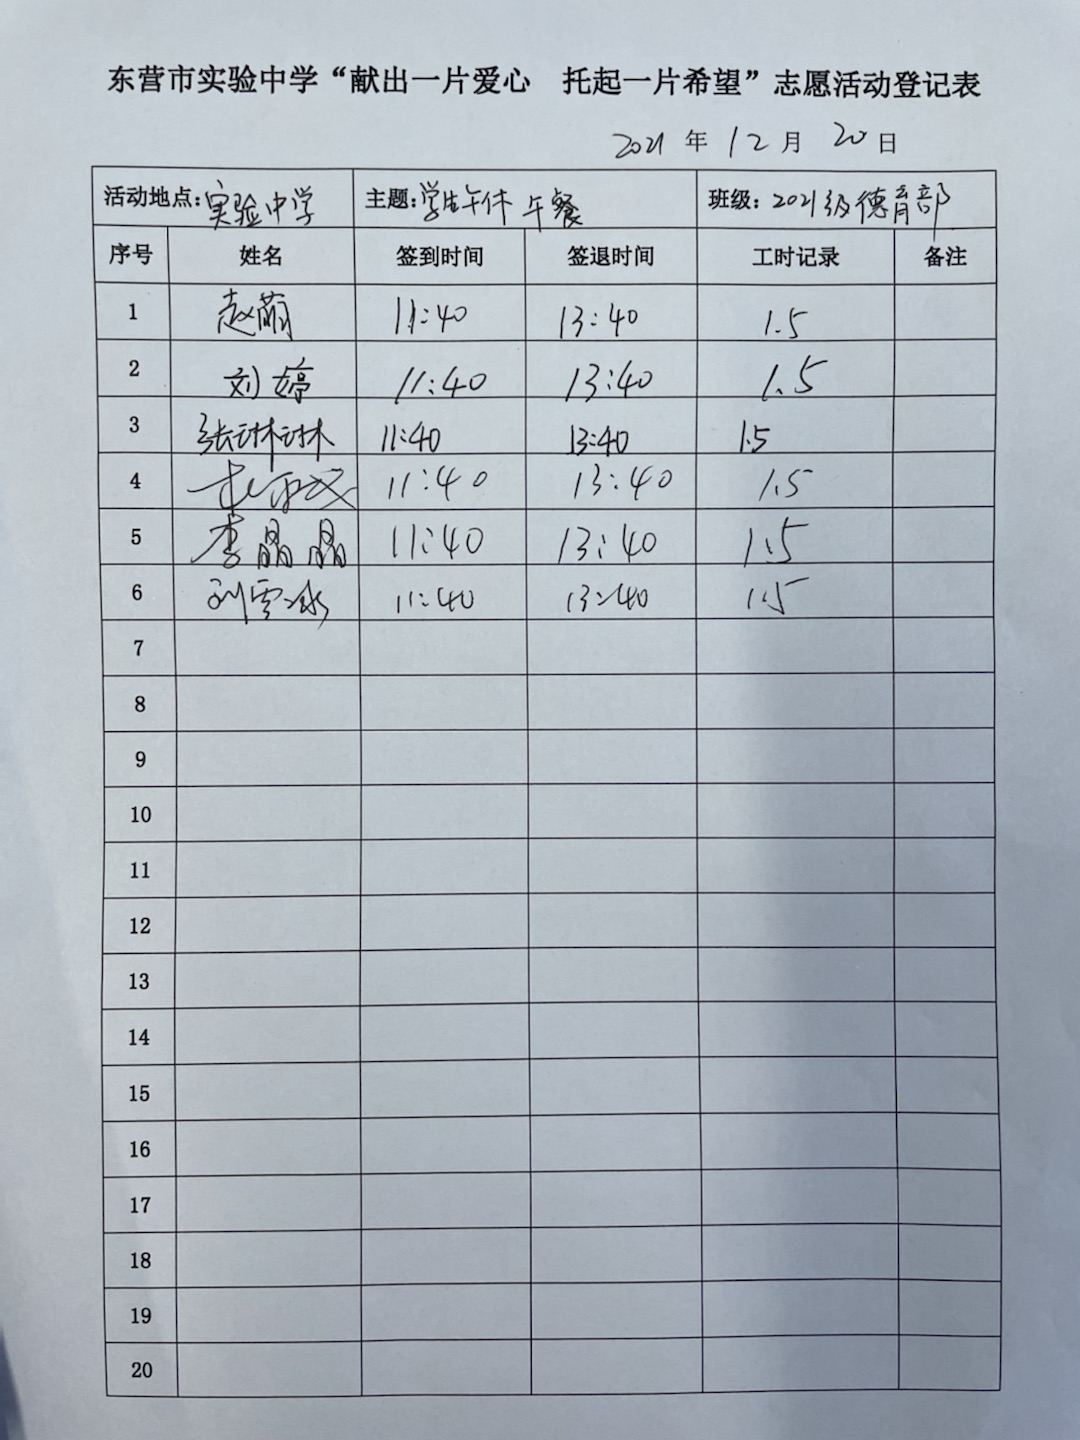 东营市实验中学“献出一片爱心 托起一片希望”志愿活动登记表
2021 年 12 月 20 日
活动地点:实验中学 主题:学生午休 午餐 班级: 2021级德育部
序号 姓名 签到时间 签退时间 工时记录 备注
1 赵萌 11:40 13:40 1.5
2 刘婷 11:40 13:40 1.5
3 张琳琳 11:40 13:40 1.5
4 11:40 13:40 1.5
5 李晶晶 11:40 13:40 1.5
6 刘雪冰 11:40 13:40 1.5
7
8
9
10
11
12
13
14
15
16
17
18
19
20